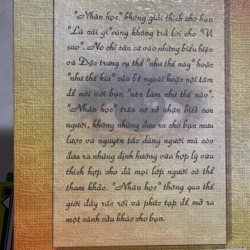 "Nhân học" không giải thích cho bạn
"Là cái gì" cũng không trả lời cho "Vì
sao". Nó chỉ căn cứ vào những biểu hiện
và Đặc trưng cụ thể "như thế này" hoặc
"như thế kia" của bề ngoài hoặc nội tâm
để nói với bạn "nên làm như thế nào".
"Nhân học" trên cơ sở nhận biết con
người, không những đưa ra cho bạn mưu
lược và nguyên tắc dùng người mà còn
đưa ra những định hướng vừa hợp lý vừa
thích hợp cho đã mọi lớp người có thể
tham khảo. "Nhân học" thông qua thế
giới đầy rắc rối và phức tạp để mở ra
một cánh cửa khác cho bạn.